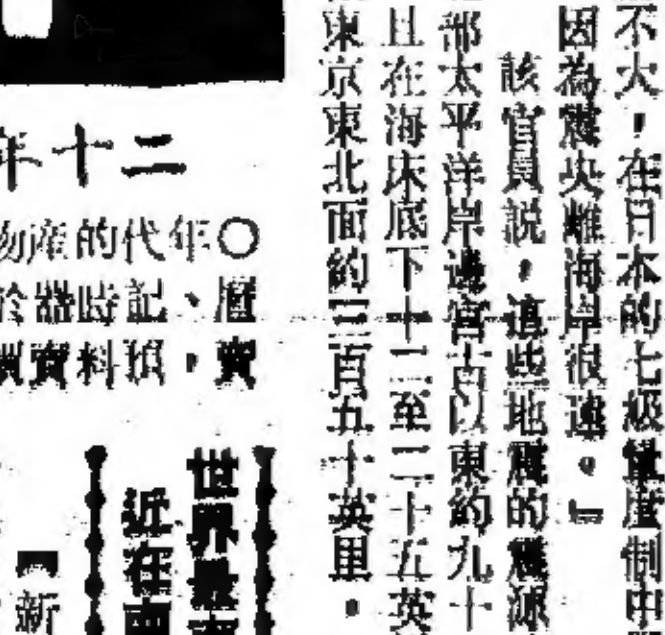 不大，在日本的七級震度制中
因為震央離海岸很遠。』
該官員説，這些地震的震源
部太平洋岸邊宮古以東約九十
且在海床底下十二至二十五英
東京東北面約三百五十英里。
二十年
〇年代的產物
曆、記時器於
實，須料資
世界最
近在
【新